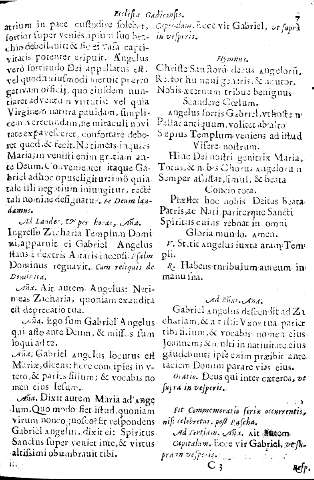 Ecclesiæ Gadicensis. 7
atrium in pace custodire solebat,
fortior superveniés, apium suo bene-
vero fortitudo Dei appellatus est,
vel quod
getivam officij, quo ejusdem nun-
tiaret adventum virtutis: vel quia
Virginem natura pavidam, simpli-
cem verecundam, ne miraculi novi-
tate expavesceret, confortare debe-
ret quod, & fecit. Ne timeas inquiés
Maria, invenisti enim gratiam an-
te Deum. Convenienter itaque Ga-
briel ad hoc opus eligitur: imò quia
tale illi negotium iniungitur, rectè
tali nomine designatur. Te Deum lau-
damus.
Ad Laudes, & per horas, Aña.
Ingresso Zacharia Templum Domi
ni, apparuit ei Gabriel Angelus
stans à dextris Altaris incensi. Psalm
Dominus regnavit. Cum reliquis de
Dominica.
Aña. Ait autem Angelus: Ne ti-
meas Zacharia, quoniam exaudita
est deprecatio tua.
Aña. Ego sum Gabriel Angelus
qui asto ante Deum, & missus sum
loqui ad te.
Aña. Gabriel Angelus locutus est
Mariæ, dicens: ecce concipies in v-
tero, & paries filium; & vocabis no
men eius Iesum.
Aña. Dixit autem Maria ad Ange
lum. Quo modo fiet istud, quoniam
virum non cognosco? et respondens
Gabriel Angelus. dixit ei: Spiritus
Sanctus superveniet in te, & virtus
altissimi obumbrabit tibi.
Capitulum. Ecce vir Gabriel, vt suprà
in vesperis.
Hymnus.
Christe Sanctorũ decus angelorũ,
Rector humani generis, & auctor.
Nobis æternum tribue benignus
Scandere Cœlum.
Angelus fortis Gabriel, vt hostem
Pellat antiquum, volitet ab alto
Sæpius Templum veniens ad istud
Visere nostrum.
Hinc Dei nostri genitrix Maria,
Totus, & nobis Chorus angelorum
Semper assistat, simul, & beata
Concio tota.
Præstet hoc nobis Deitas beata
Patris, ac Nati pariterque Sancti
Spiritus cuius reboat in omni
Gloria mundo. Amen.
V. Stetit angelus iuxta aram Tem-
pli.
R. Habens thuribulum aureum in
manu sua.
Ad Bñus. Aña.
Gabriel Angelus descendit ad Za
chariam, & ait illi: Vxor tua pariet
tibi filium, & vocabis nomen eius
Joannem; & multi in nativitate eius
gaudebunt: ipse enim præibit ante
faciem Domini parare vias eius.
Oratio. Deus qui inter cæteros, vt
supra in vesperis.
Fit Commemoratio feriæ occurrentis,
nisi celebretur post Pascha.
Ad Tertiam. Aña. Ait autem
Capitulum. Ecce vir Gabriel, vt su-
pra in vesperis.
C 3 Resp.